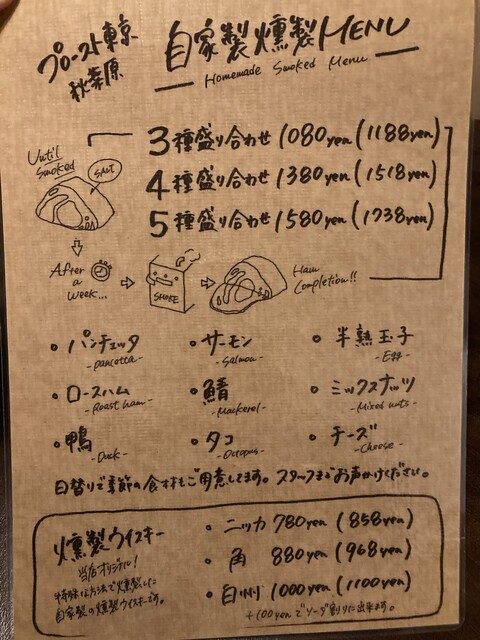 プロースト東京
秋葉原
自家製燻製MENU
Homemade Smoked Menu
3種盛り合わせ 1080yen (1188yen)
4種盛り合わせ 1380yen (1518yen)
5種盛り合わせ 1580yen (1738yen)
Until
Smoked
SALT
After
a
week...
SMOKE
Ham
Completion!!
• パンチェッタ
-pancetta-
• サーモン
-Salmon-
• 半熟玉子
-Egg-
• ロースハム
-Roast ham-
• 鯖
-Mackerel-
• ミックスナッツ
-Mixed nuts-
• 鴨
-Duck-
• タコ
-Octopus-
• チーズ
-Cheese-
日替りで季節の食材もご用意してます。スタッフまでお声かけください。
燻製ウイスキー
当店オリジナル!
特殊な方法で燻製した
自家製の燻製ウイスキーです。
• ニッカ 780yen (858yen)
• 角 880yen (968yen)
• 白州 1000yen (1100yen)
+100yenでソーダ割りに出来ます。